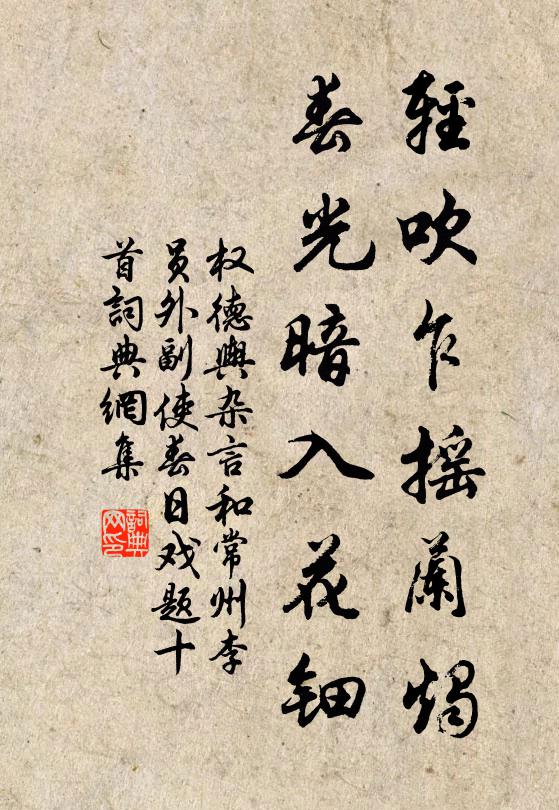 輕吹乍摇蘭燭
春光暗入花鈿
权德輿杂言和常州李
員外副使春日戏题十
首詞典網集
詞典
网印